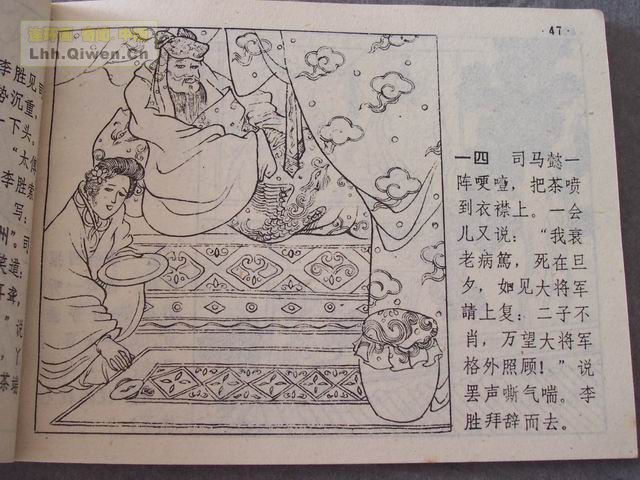 连环画·名图·中国
Lhh.Qiwen.Cn
·47·
李胜见司
势沉重,
一下头,
“太傅
李胜索
写:
州”。司
笑道:
耳聋,
”说
,丫
茶端
一四　司马懿一
阵哽噎,把茶喷
到衣襟上。一会
儿又说:“我衰
老病篤,死在旦
夕,如见大将军
請上复:二子不
肖,万望大将军
格外照顾!”说
罢声嘶气喘。李
胜拜辞而去。